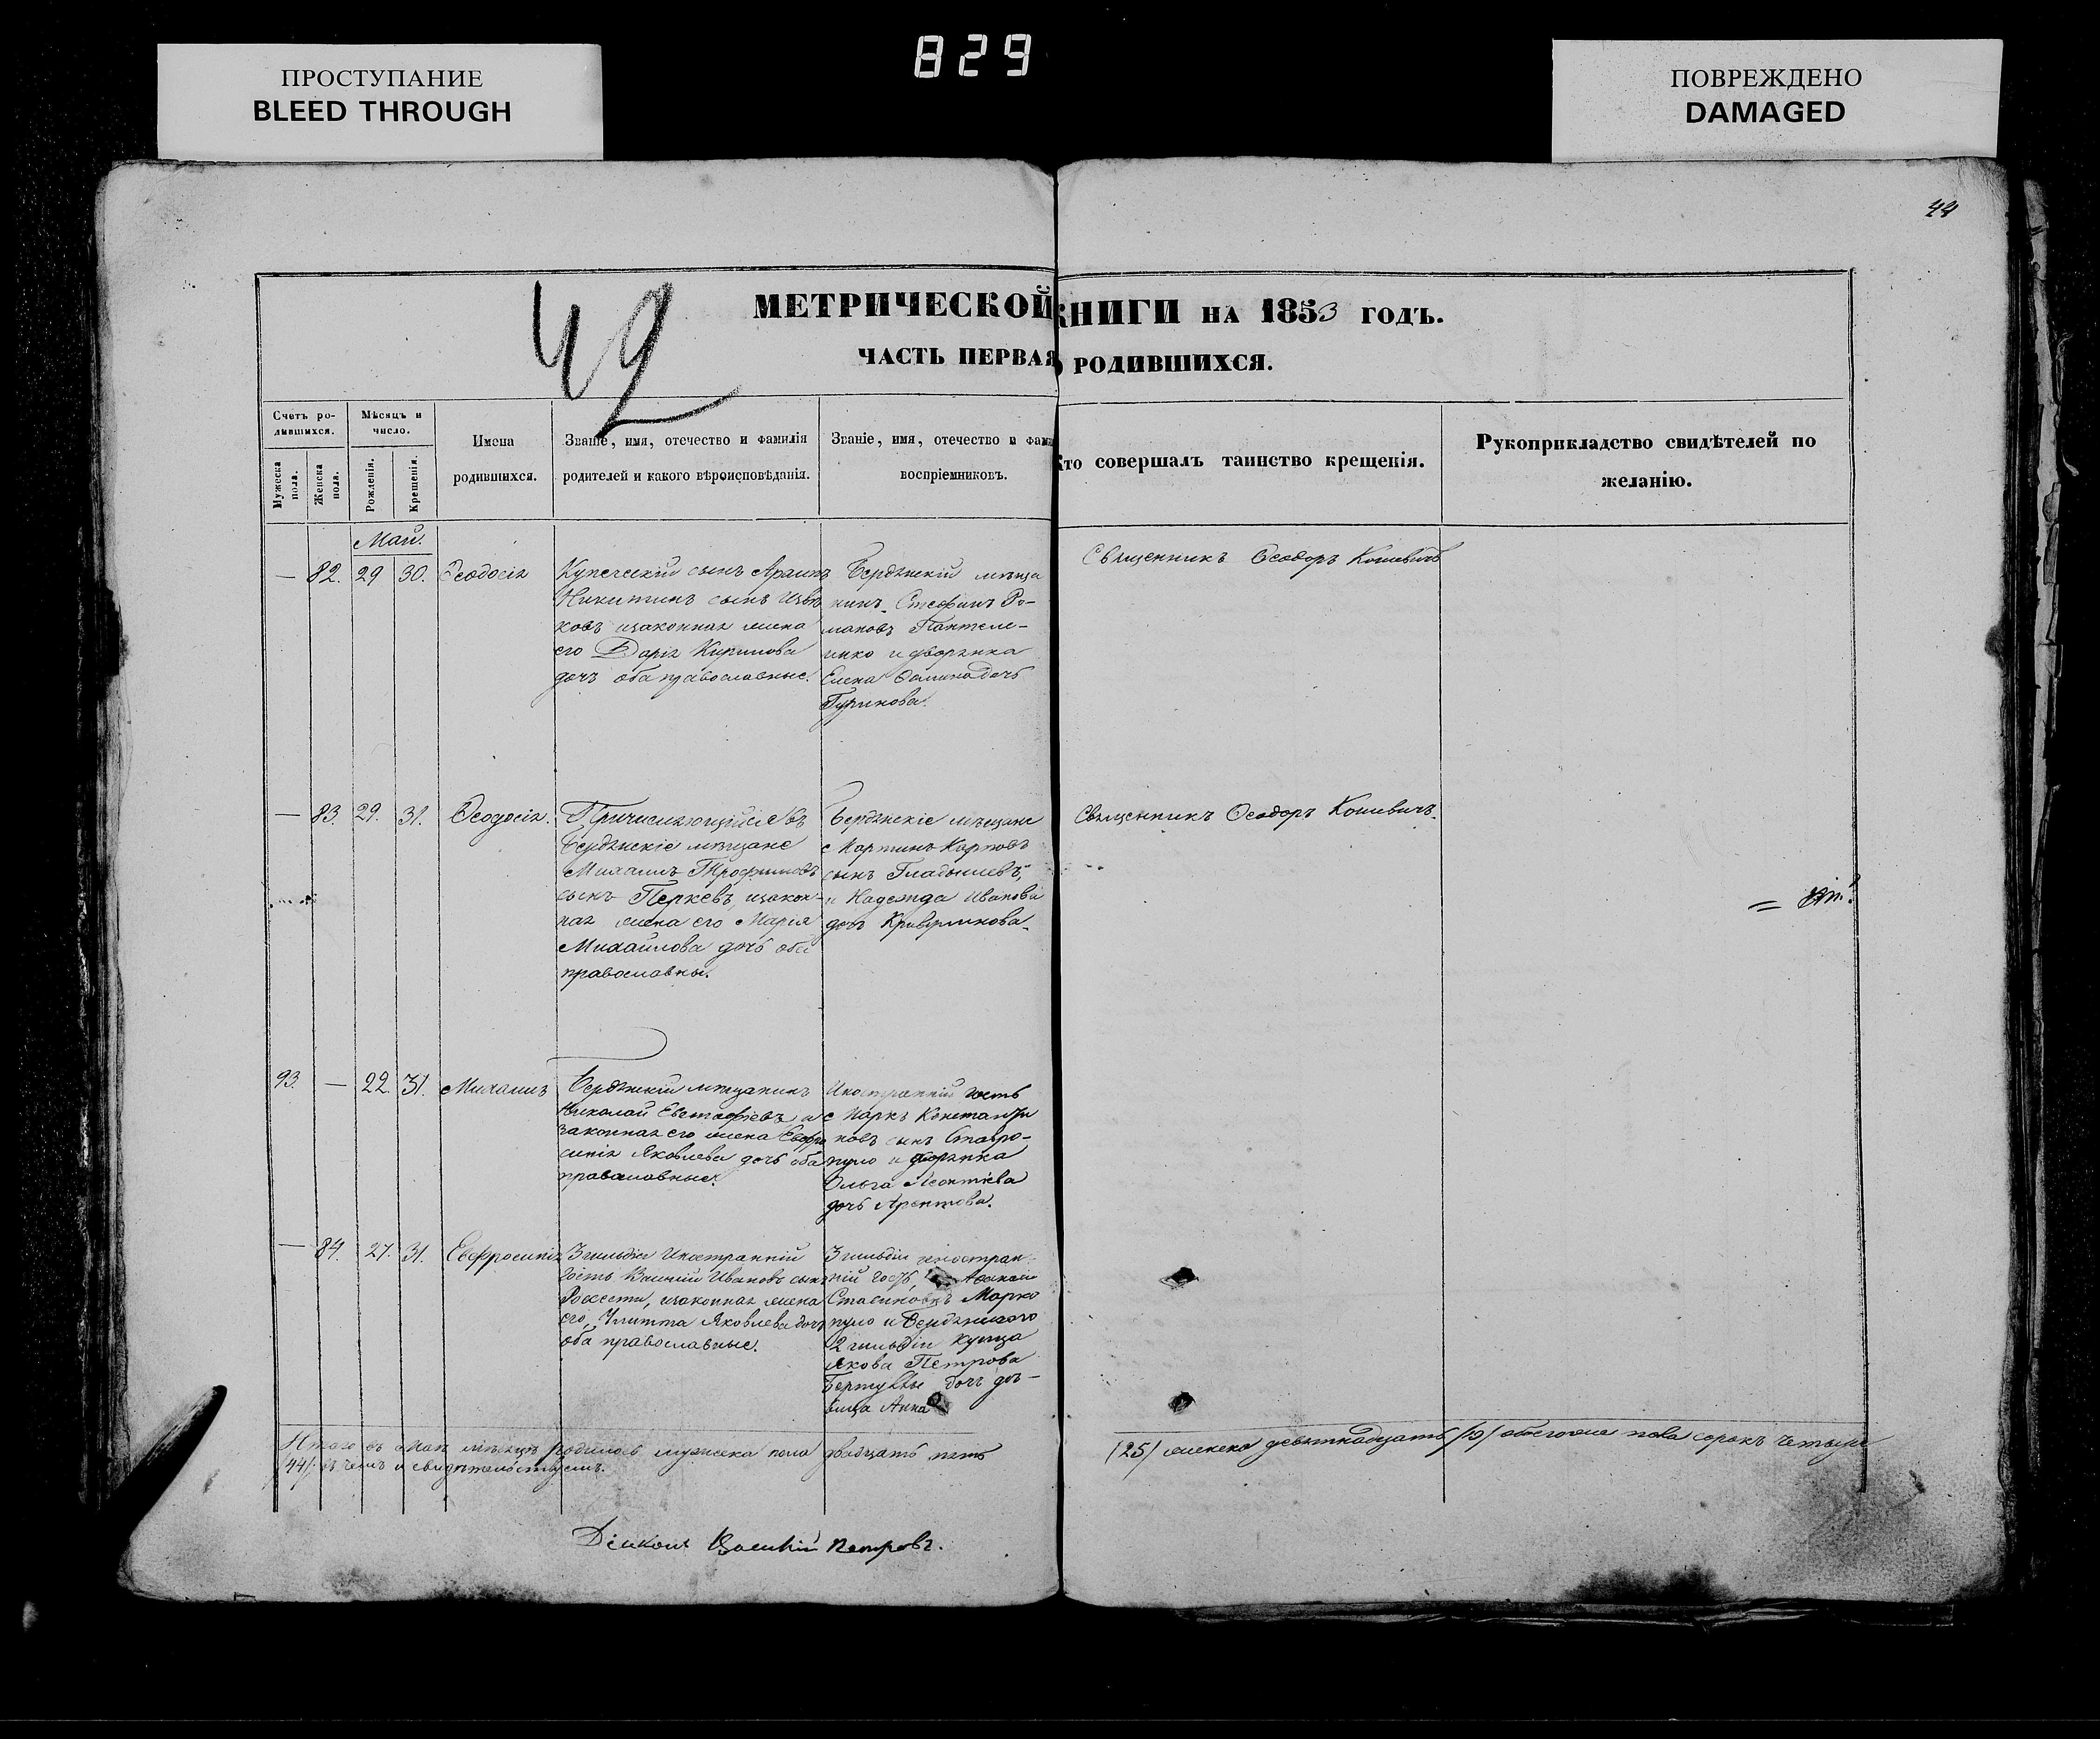 ПРОСТУПАНИЕ
BLEED THROUGH
829
ПОВРЕЖДЕНО
DAMAGED
44
42
МЕТРИЧЕСКОЙ КНИГИ НА 1853 ГОДЪ.
ЧАСТЬ ПЕРВАЯ РОДИВШИХСЯ.
Счетъ ро-
дившихся.
Мужеска
пола.
Женска
пола.
Мѣсяцъ и
число.
Рожденія.
Крещенія.
Имена
родившихся.
Званіе, имя, отечество и фамилія
родителей и какого вѣроисповѣданія.
Званіе, имя, отечество и фами
воспріемниковъ.
Кто совершалъ таинство крещенія.
Рукоприкладство свидѣтелей по
желанію.
Май.
— 82. 29 30. Ѳеодосія
Купеческій сынъ
Никитинъ сынъ
ковъ изаконная жена
его Дарія Кирилова
дочь оба православные.
Бердянскій мѣща
нинъ Стефанъ Ро-
мановъ Пантеле-
енко и дворянка
Елена дочь
Гуринова.
Священникъ Ѳеодоръ
— 83. 29. 31. Ѳеодосія.
Причисляющійся въ
Бердянскіе мѣщане
Михаилъ Трофимовъ
сынъ Перкевъ, изакон-
ная жена его Марія
Михайлова дочь оба
православны.
Бердянскіе мѣщане
Мартинъ Карповъ
сынъ
и Надежда Иванова
дочь
Священникъ Ѳеодоръ
93. — 22. 31. Михаилъ
Бердянскій мѣщанинъ
Николай Евстафіевъ и
законная его жена Евфро
синія Яковлева дочь оба
православные.
Иностранній гость
Маркъ Константи
новъ сынъ Ставро-
пуло и дворянка
Ольга Леонтіева
дочь
— 84. 27. 31. Евфросинія
3 гильдіи Иностранній
гость Василій Ивановъ сынъ
изаконная жена
его, Яковлева дочь
оба православные.
3 гильдіи иностран-
ній гость
Марко
пуло и Бердянскаго
2 гильдіи купца
Якова Петрова
дочь дѣ-
вица Анна
Итого въ Маѣ мѣсяцѣ родилось мужеска пола двадцать пять
/25/ женска девятнадцать /19/ обоегоже пола сорокъ четыре
/44/. въ чемъ и свидѣтельствуемъ.
Діаконъ Василій Петровъ.